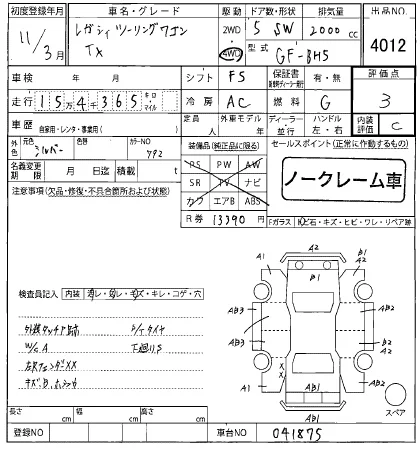 初度登録年月 車名・グレード 駆動 ドア数・形状 排気量 出品NO.
11/3月 レガシィツーリングワゴン TX 2WD 4WD 5 SW 2000cc 4012
型式 GF-BH5
車検 年 月 シフト F5 保証書 有・無 評価点
走行 154365 キロ・マイル 冷房 AC 燃料 G 3
車歴 自家用・レンタ・事業用( ) 定員 人 外車モデル 年 ディーラー 並行 ハンドル 左・右 内装評価 C
外色 元色 シルバー 色替 カラーNO 792 装備品(純正品に限る) セールスポイント(正常に作動するもの)
名義変更期限 月 日迄 積載 t PS PW AW
SR TV ナビ ノークレーム車
注意事項(欠品・修復・不具合箇所および状態) カワ エアB ABS
R券 13390円 Fガラス 飛石・キズ・ヒビ・ワレ・リペア跡
A2 B1 A2
A1 B1
検査員記入 内装 汚レ・スレ・キズ・キレ・コゲ・穴 AB3 AB2
外装タッチアップ跡 タイヤ AB3 AB3
W/C A 下廻りS
XX XX
A1 B2 A2
AB1 スペア
長さ cm 幅 cm 高さ cm AB1
登録NO 車台NO 041875